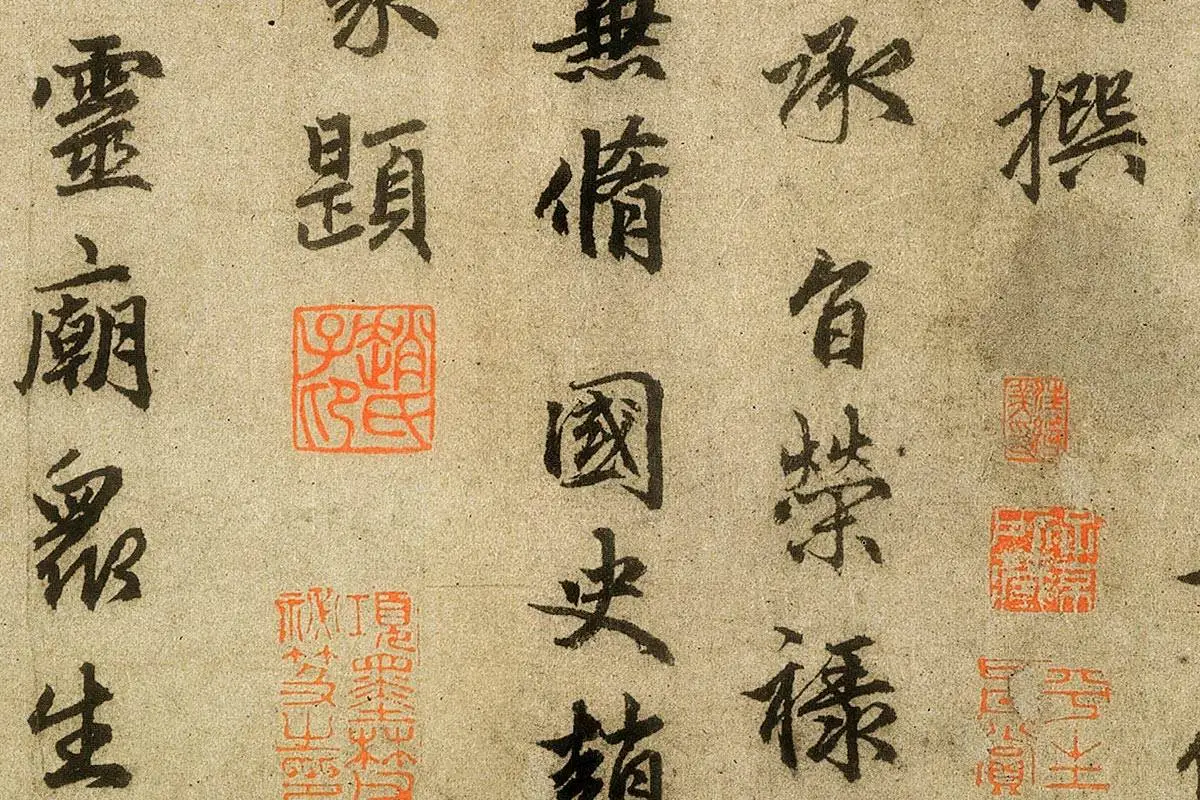 撰
承旨榮祿
兼脩國史趙
題
靈廟眾生
趙氏子卬
項墨林父
秘笈之印
平生真賞